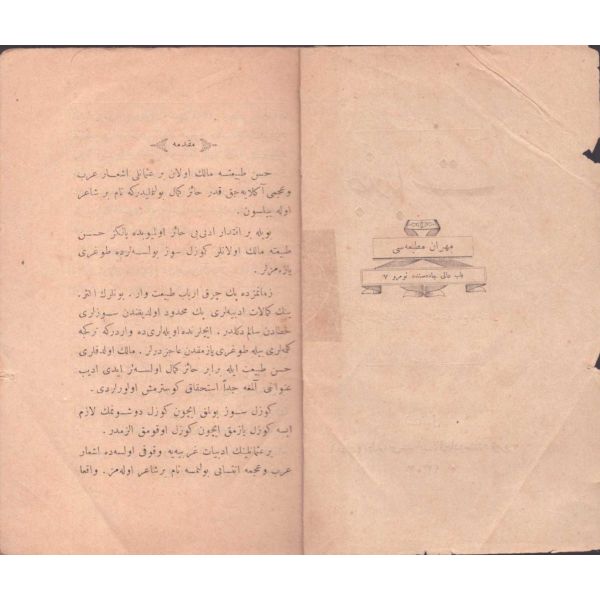 مهران مطبعه‌سی
باب عالی جاده‌سنده نومرو ٧
مقدمه
حسن طبیعته مالك اولان بر عثمانلی اشعار عرب
وعجمی آكلایه‌جق قدر حائز كمال بولنملیدركه تام بر شاعر
اوله بیلسون .
بویله بر اقتدار ادبی‌یی حائز اولمیوبده یالكز حسن
طبیعته مالك اولانلر كوزل سوز بولسه‌لرده طوغری
یازه‌مزلر .
زمانمزده پك چوق ارباب طبیعت وار . بونلرك اكثر
ینك كمالات ادبیه‌لری پك محدود اولدیغندن سوزلری
خطادن سالم دكلدر . ایچلرنده اویله‌لری‌ده واردركه تركجه
كلمه‌لری بیله طوغری یازمقدن عاجزدرلر . مالك اولدقلری
حسن طبیعت ایله برابر حائز كمال اولسه‌لر ایدی ادیب
عنواننی آلمغه جداً استحقاق كوسترمش اولورلردی .
كوزل سوز بولمق ایچون كوزل دوشونمك لازم
ایسه كوزل یازمق ایچون كوزل اوقومق الزمدر .
بر عثمانلینك ادبیات غربیه‌یه وقوفی اولسه‌ده اشعار
عرب وعجمه انتسابی بولنمسه تام برشاعر اوله‌مز . واقعا